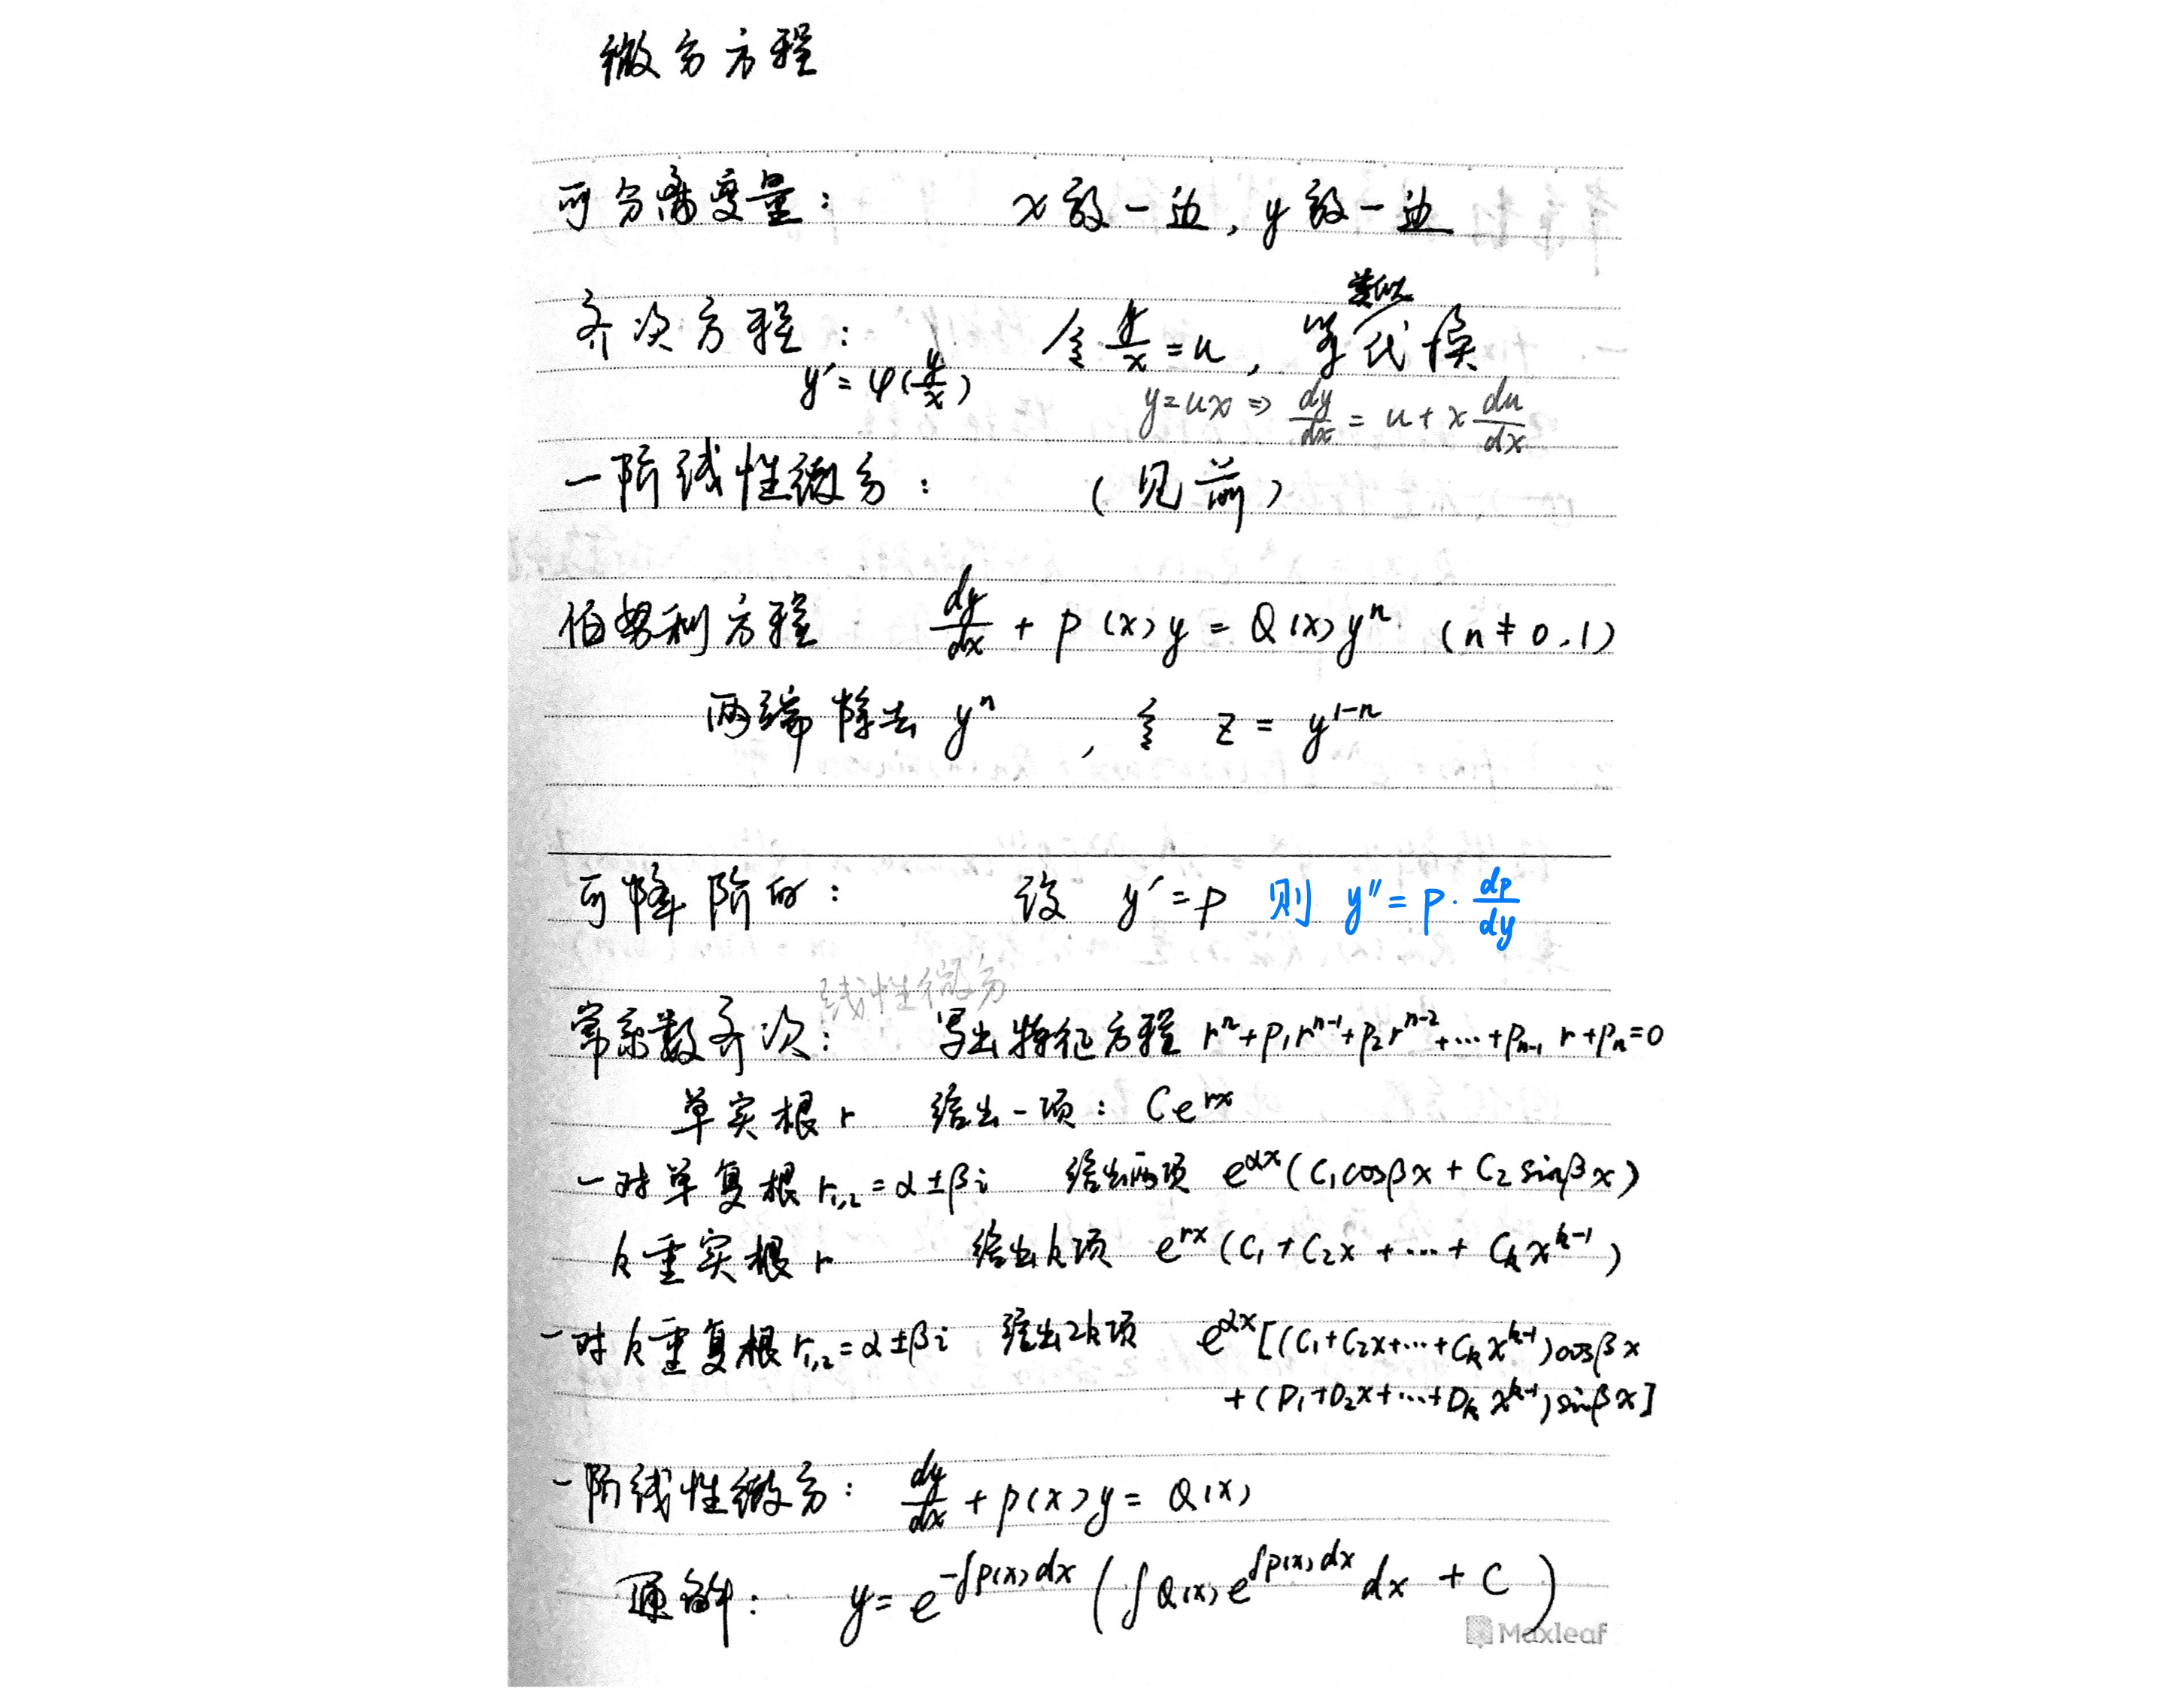 微分方程
可分离变量： x放一边，y放一边
类似
齐次方程： 令 y/x = u，等代换
y' = φ(y/x) y=ux ⇒ dy/dx = u + x du/dx
一阶线性微分： （见前）
伯努利方程 dy/dx + p(x)y = Q(x)yⁿ （n≠0,1）
两端除去 yⁿ ，令 z = y¹⁻ⁿ
可降阶的： 设 y' = p 则 y'' = p· dp/dy
线性微分
常系数齐次： 写出特征方程 rⁿ+p₁rⁿ⁻¹+p₂rⁿ⁻²+…+pₙ₋₁ r+pₙ=0
单实根 r 给出一项： Ce^{rx}
一对单复根 r₁,₂ = α±βi 给出两项 e^{αx}(C₁cosβx + C₂sinβx)
k重实根 r 给出k项 e^{rx}(C₁ + C₂x + … + Cₖx^{k-1})
一对k重复根 r₁,₂ = α±βi 给出2k项 e^{αx}[(C₁+C₂x+…+Cₖx^{k-1})cosβx
+(D₁+D₂x+…+Dₖx^{k-1})sinβx]
一阶线性微分： dy/dx + p(x)y = Q(x)
通解： y = e^{-∫p(x)dx} (∫Q(x)e^{∫p(x)dx} dx + C)
Maxleaf